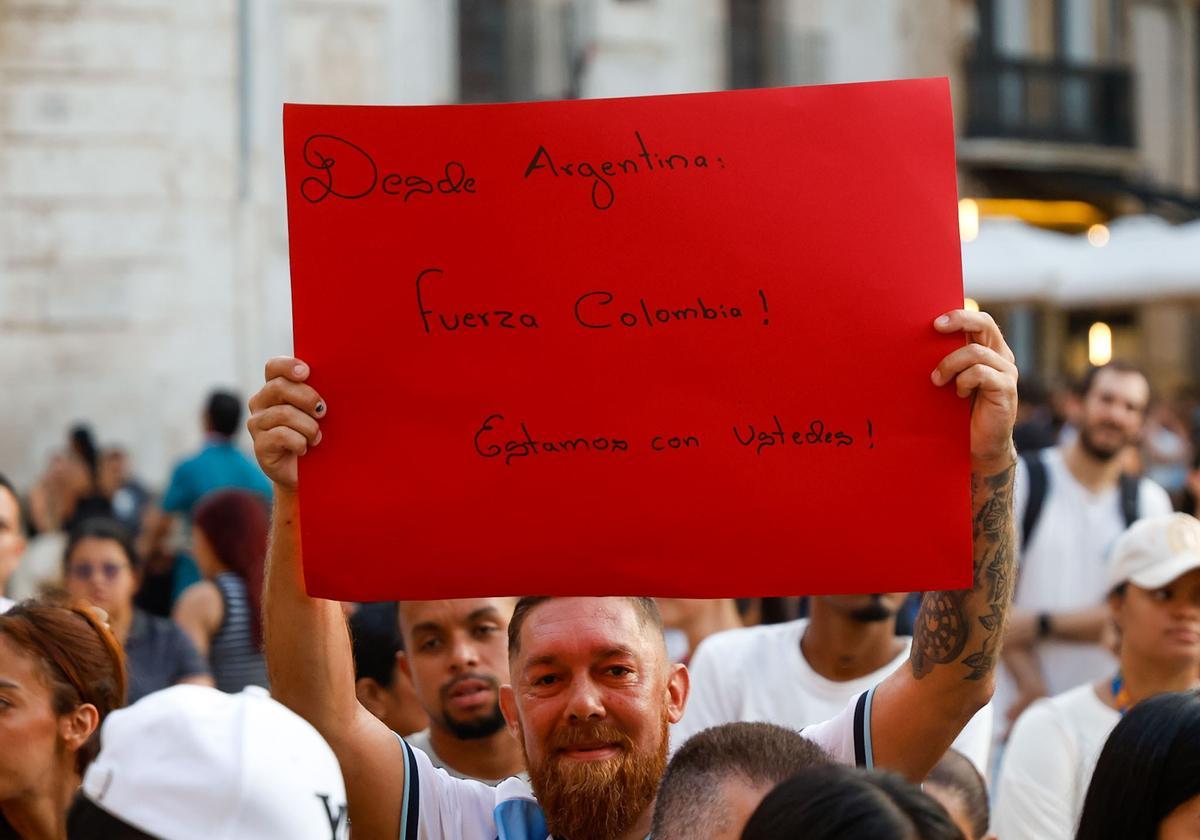 Desde Argentina:
Fuerza Colombia!
Estamos con ustedes!